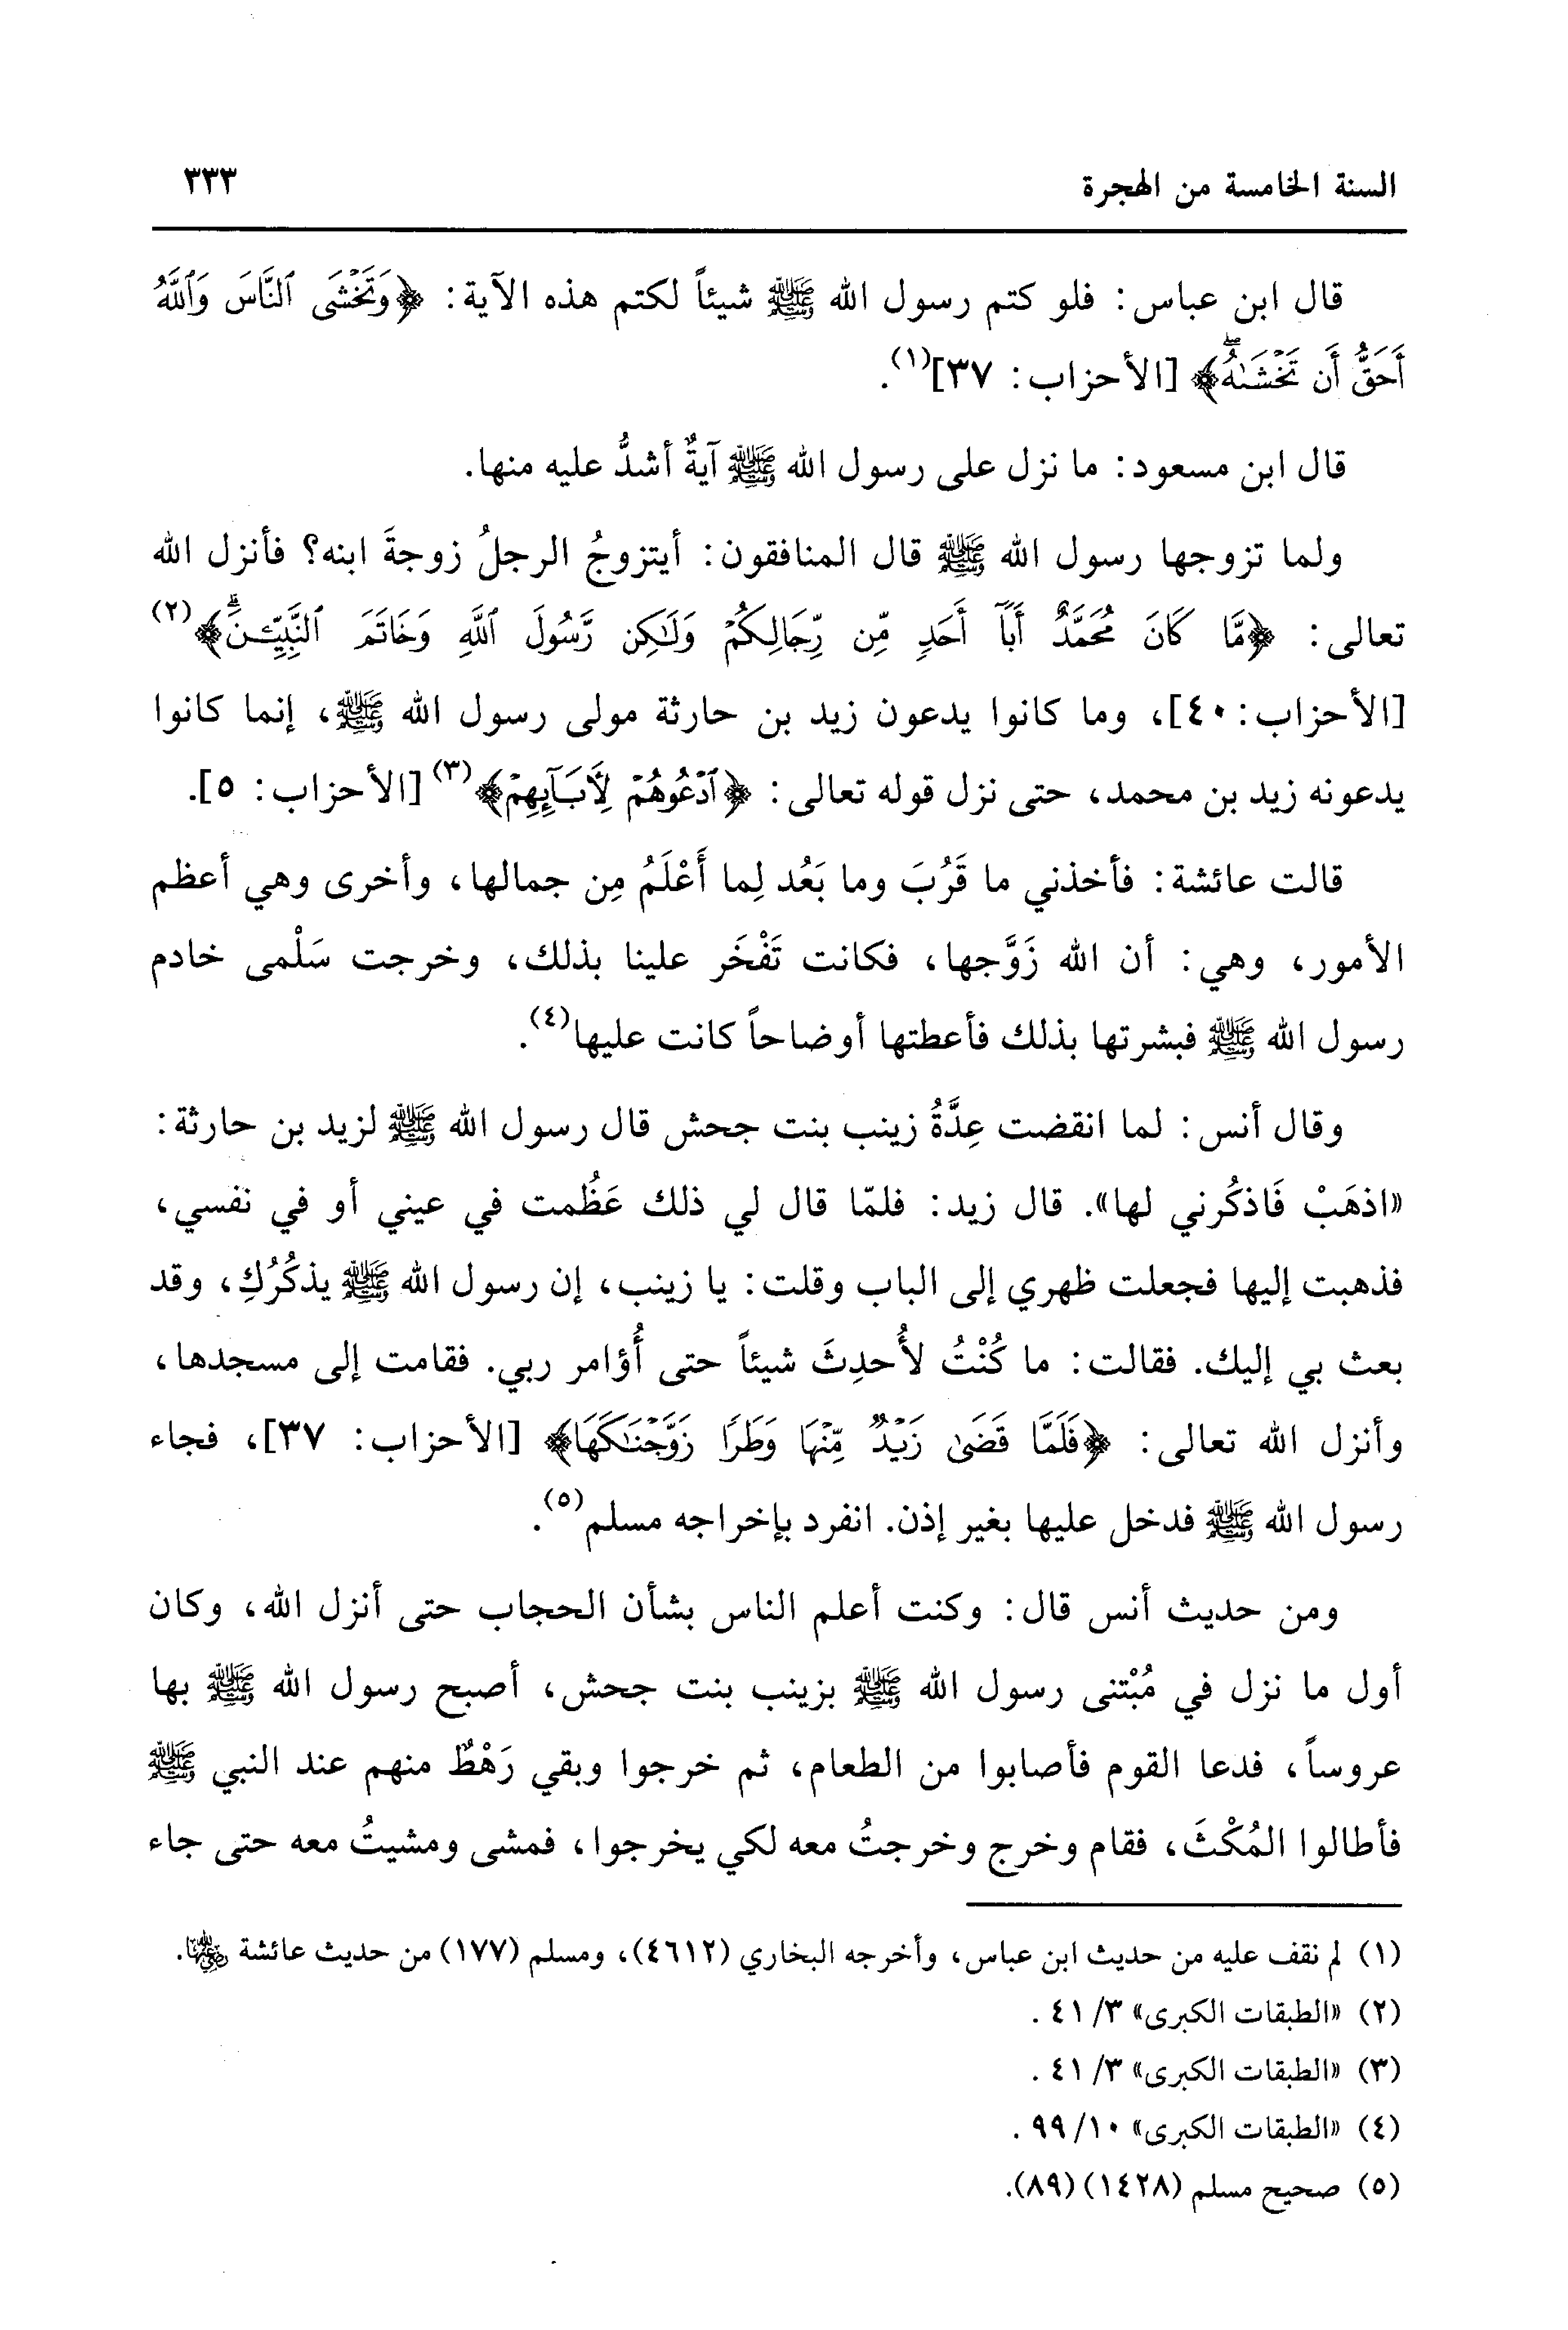 السنة الخامسة من الهجرة ٣٣٣
قال ابن عباس: فلو كتم رسول الله ﷺ شيئاً لكتم هذه الآية: ﴿وَتَخْشَى ٱلنَّاسَ وَٱللَّهُ
أَحَقُّ أَن تَخْشَىٰهُۖ﴾ [الأحزاب: ٣٧](١).
قال ابن مسعود: ما نزل على رسول الله ﷺ آيةٌ أشدُّ عليه منها.
ولما تزوجها رسول الله ﷺ قال المنافقون: أيتزوجُ الرجلُ زوجةَ ابنه؟ فأنزل الله
تعالى: ﴿مَّا كَانَ مُحَمَّدٌ أَبَآ أَحَدٍ مِّن رِّجَالِكُمْ وَلَـٰكِن رَّسُولَ ٱللَّهِ وَخَاتَمَ ٱلنَّبِيِّـۧنَۗ﴾(٢)
[الأحزاب: ٤٠]، وما كانوا يدعون زيد بن حارثة مولى رسول الله ﷺ، إنما كانوا
يدعونه زيد بن محمد، حتى نزل قوله تعالى: ﴿ٱدْعُوهُمْ لِأَبَآئِهِمْ﴾(٣) [الأحزاب: ٥].
قالت عائشة: فأخذني ما قَرُبَ وما بَعُد لِما أَعْلَمُ مِن جمالها، وأخرى وهي أعظم
الأمور، وهي: أن الله زَوَّجها، فكانت تَفْخَر علينا بذلك، وخرجت سَلْمى خادم
رسول الله ﷺ فبشرتها بذلك فأعطتها أوضاحاً كانت عليها(٤).
وقال أنس: لما انقضت عِدَّةُ زينب بنت جحش قال رسول الله ﷺ لزيد بن حارثة:
«اذهَبْ فَاذكُرني لها». قال زيد: فلمّا قال لي ذلك عَظُمت في عيني أو في نفسي،
فذهبت إليها فجعلت ظهري إلى الباب وقلت: يا زينب، إن رسول الله ﷺ يذكُرُكِ، وقد
بعث بي إليك. فقالت: ما كُنْتُ لأُحدِثَ شيئاً حتى أُؤامر ربي. فقامت إلى مسجدها،
وأنزل الله تعالى: ﴿فَلَمَّا قَضَىٰ زَيْدٌ مِّنْهَا وَطَرًا زَوَّجْنَـٰكَهَا﴾ [الأحزاب: ٣٧]، فجاء
رسول الله ﷺ فدخل عليها بغير إذن. انفرد بإخراجه مسلم(٥).
ومن حديث أنس قال: وكنت أعلم الناس بشأن الحجاب حتى أنزل الله، وكان
أول ما نزل في مُبْتنى رسول الله ﷺ بزينب بنت جحش، أصبح رسول الله ﷺ بها
عروساً، فدعا القوم فأصابوا من الطعام، ثم خرجوا وبقي رَهْطٌ منهم عند النبي ﷺ
فأطالوا المُكْثَ، فقام وخرج وخرجتُ معه لكي يخرجوا، فمشى ومشيتُ معه حتى جاء
(١) لم نقف عليه من حديث ابن عباس، وأخرجه البخاري (٤٦١٢)، ومسلم (١٧٧) من حديث عائشة رضي الله عنها.
(٢) «الطبقات الكبرى» ٣/ ٤١ .
(٣) «الطبقات الكبرى» ٣/ ٤١ .
(٤) «الطبقات الكبرى» ١٠/ ٩٩ .
(٥) صحيح مسلم (١٤٢٨) (٨٩).